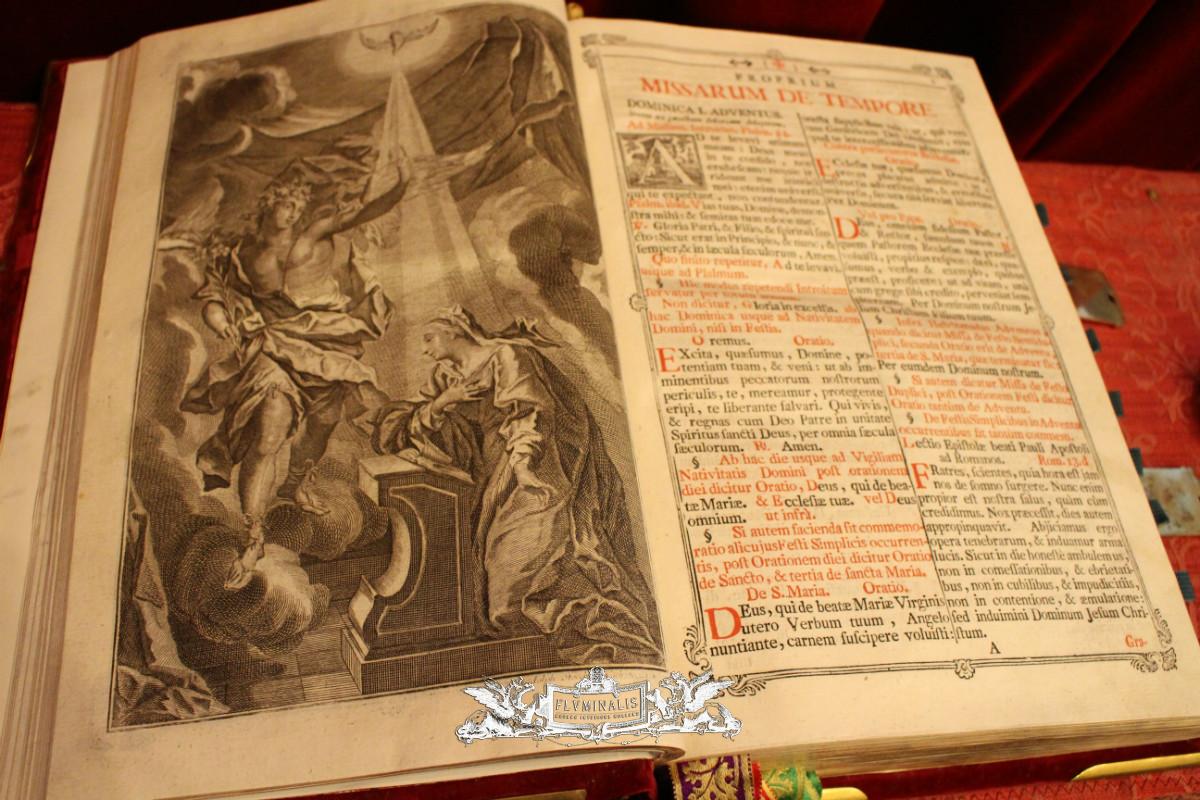 PROPRIUM
MISSARUM DE TEMPORE
DOMINICA I. ADVENTUS.
AD te levavi animam
meam: Deus meus
in te confido, non
erubescam: neque
mei: etenim universi
qui te expectant, non confundentur.
Psalm. ibid. Vias tuas, Domine, demon-
stra mihi: & semitas tuas edoce me.
℣. Gloria Patri, & Filio, & spiritui san-
cto: Sicut erat in Principio, & nunc, &
semper, & in sæcula sæculorum, Amen.
Quo finito repetitur, Ad te levavi,
usque ad Psalmum.
§ Hic modus repetendi Introitum
servatur per totum
Non dicitur, Gloria in excelsis. ab
hac Dominica usque ad Nativitatem
Domini, nisi in Festis.
Oremus. Oratio.
EXcita, quæsumus, Domine, po-
tentiam tuam, & veni: ut ab im-
minentibus peccatorum nostrorum
periculis, te, mereamur, protegente
eripi, te liberante salvari. Qui vivis,
& regnas cum Deo Patre in unitate
Spiritus sancti Deus, per omnia sæcula
sæculorum. ℟. Amen.
§ Ab hac die usque ad Vigiliam
Nativitatis Domini post orationem
diei dicitur Oratio, Deus, qui de bea-
tæ Mariæ. & Ecclesiæ tuæ. vel Deus
omnium. ut infrà.
§ Si autem facienda sit commemo-
ratio alicujus Festi Simplicis occurren-
tis, post Orationem diei dicitur Oratio
de Sancto, & tertia de sancta Maria.
De S. Maria. Oratio.
DEus, qui de beatæ Mariæ Virginis
utero Verbum tuum, Angelo
nuntiante, carnem suscipere voluisti:
Ecclesiæ tuæ, quæsumus, Domine,
preces
Per Dominum.
Vel pro Papa. Oratio.
DEus, omnium fidelium Pastor,
& Rector, famulum tuum N.
quem Pastorem Ecclesiæ tuæ præesse
voluisti, propitius respice: da ei, quæ-
sumus, verbo & exemplo, quibus
præest, proficere: ut ad vitam, unà
cum grege sibi credito, perveniat sem-
piternam. Per Dominum nostrum Je-
sum Christum Filium tuum.
Per eumdem Dominum nostrum.
§ Si autem dicatur Missa de Festo
Duplici, post Orationem Festi dicitur
Oratio tantùm de Adventu.
§ De Festis Simplicibus in Adventu
occurrentibus fit tantùm commem.
Lectio Epistolæ beati Pauli Apostoli
ad Romanos. Rom. 13. d
FRatres, scientes, quia hora est jam
nos de somno surgere. Nunc enim
propior est nostra salus, quàm cùm
credidimus. Nox præcessit, dies autem
appropinquavit. Abjiciamus ergo
opera tenebrarum, & induamur arma
lucis. Sicut in die honestè ambulemus,
non in comessationibus, & ebrietati-
bus, non in cubilibus, & impudicitiis,
non in contentione, & æmulatione:
sed induimini Dominum Jesum Chri-
stum.
A
Gra-
FLVMINALIS